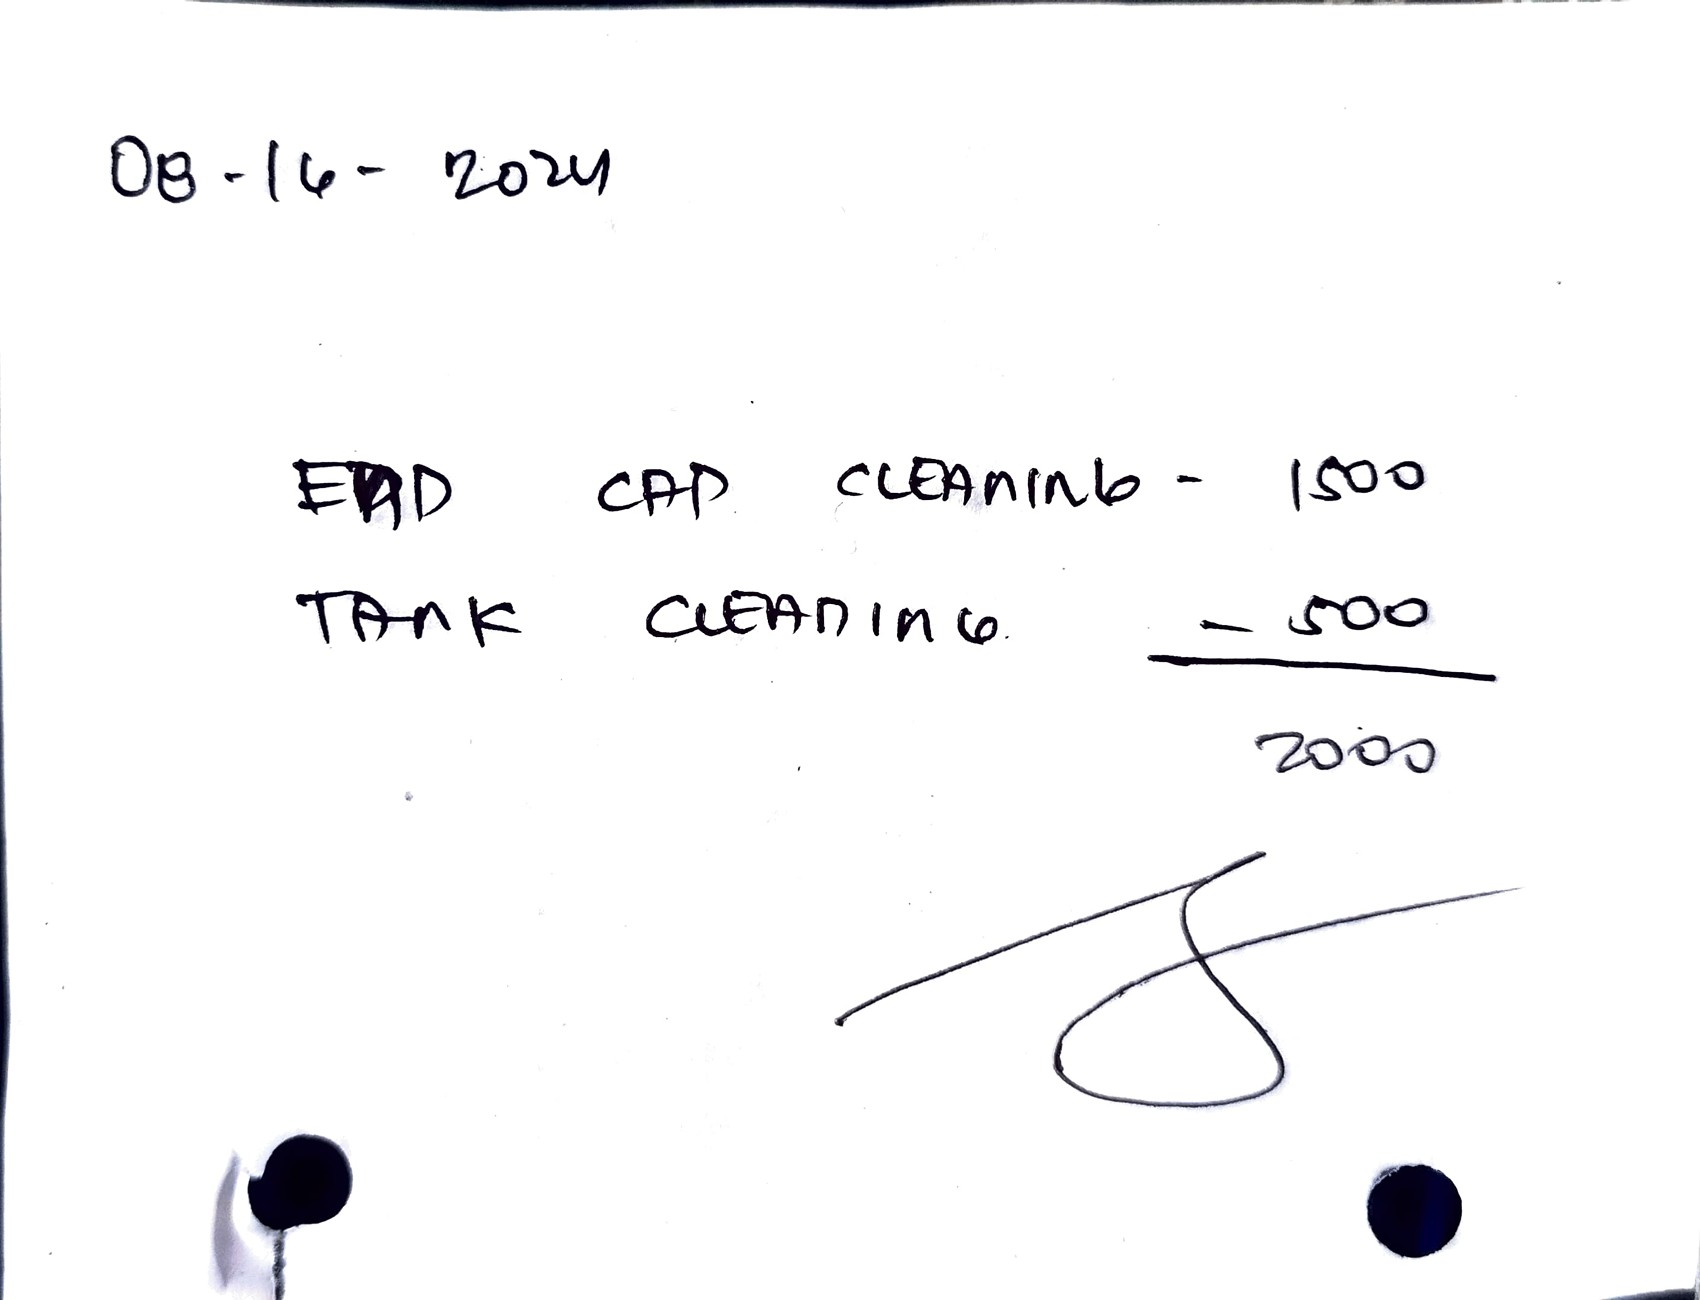 08-16-2024
END CAP CLEANING - 1500
TANK CLEANING - 500
2000